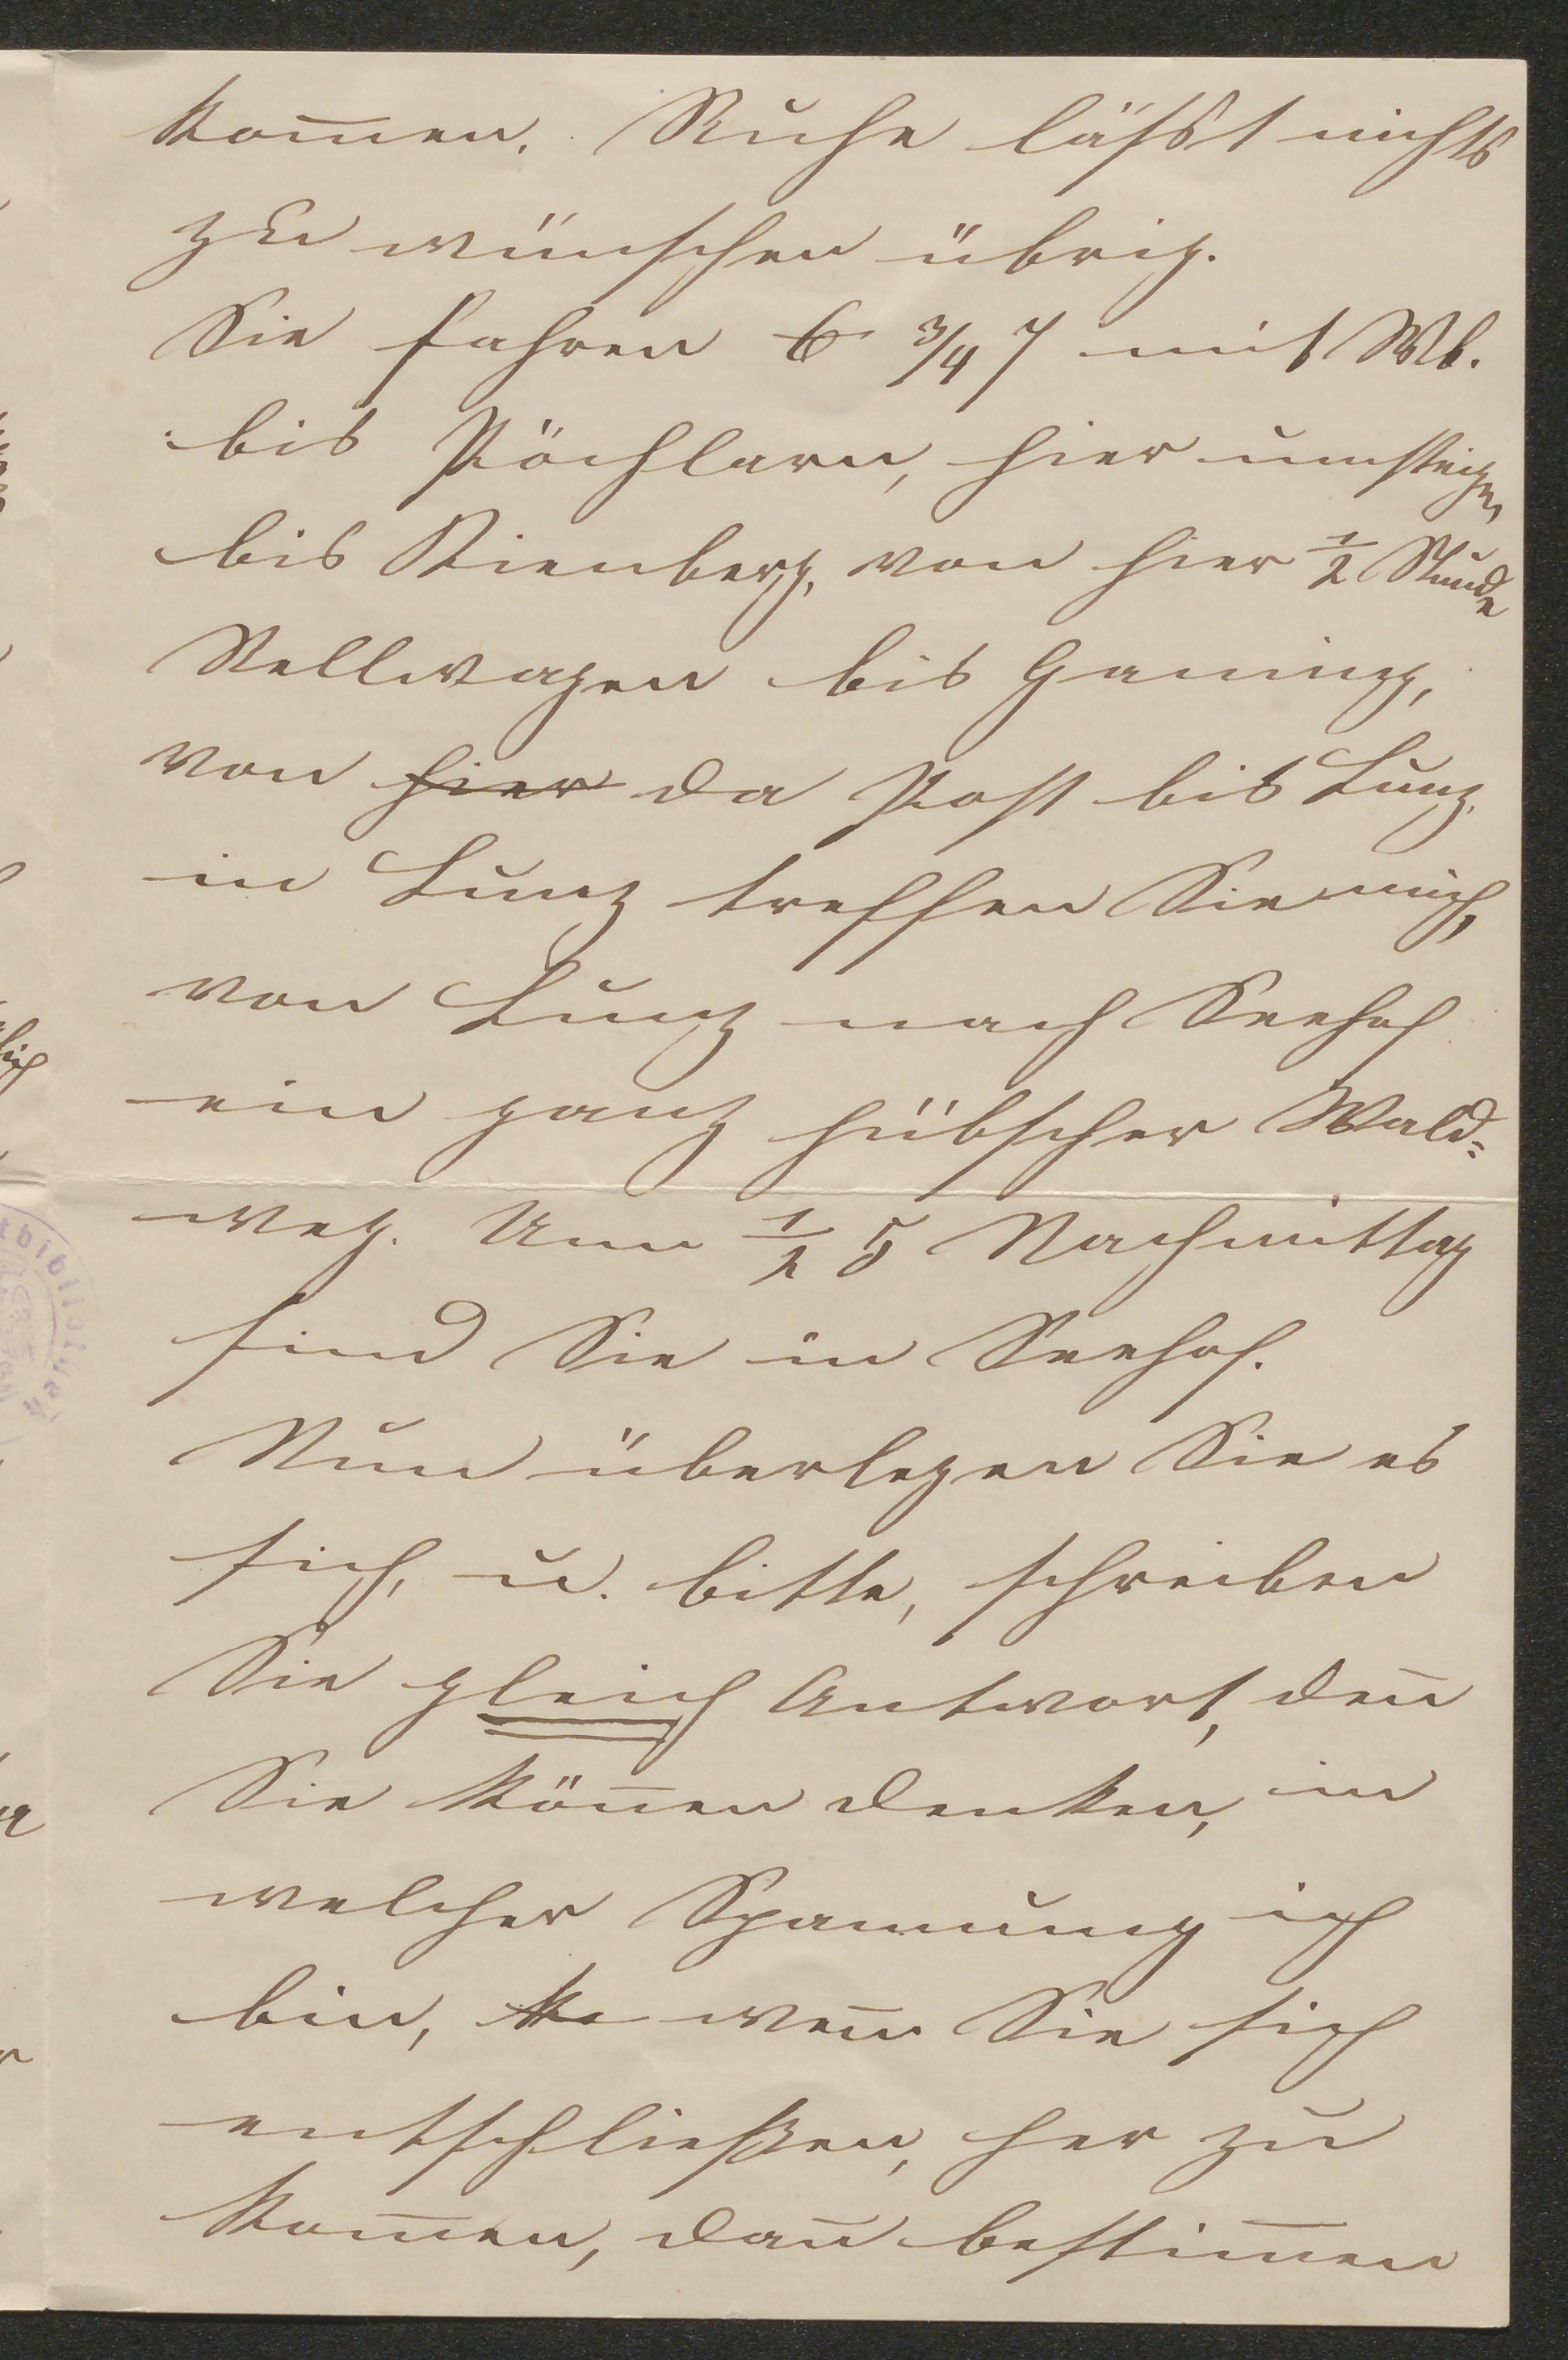 kom̅en. Ruhe läßt nichts
zu wünschen übrig.
Sie fahren 6 3/4 7 mit Wb.
bis Pöchlarn, hier umsteigen,
bis Kienberg, von hier 1/2 Stunde
Stellwagen bis Gaming,
von hier da Post bis Lunz,
in Lunz treffen Sie mich,
von Lunz nach Seehof
ein ganz hübscher Wald=
weg. Um 1/2 5 Nachmittag
sind Sie in Seehof.
Nun überlegen Sie es
sich, u. bitte, schreiben
Sie gleich Antwort, den̅
Sie kön̅en denken, in
welcher Spannung ich
bin, Ko wen̅ Sie sich
entschließen, her zu
kom̅en, dan̅ bestim̅en